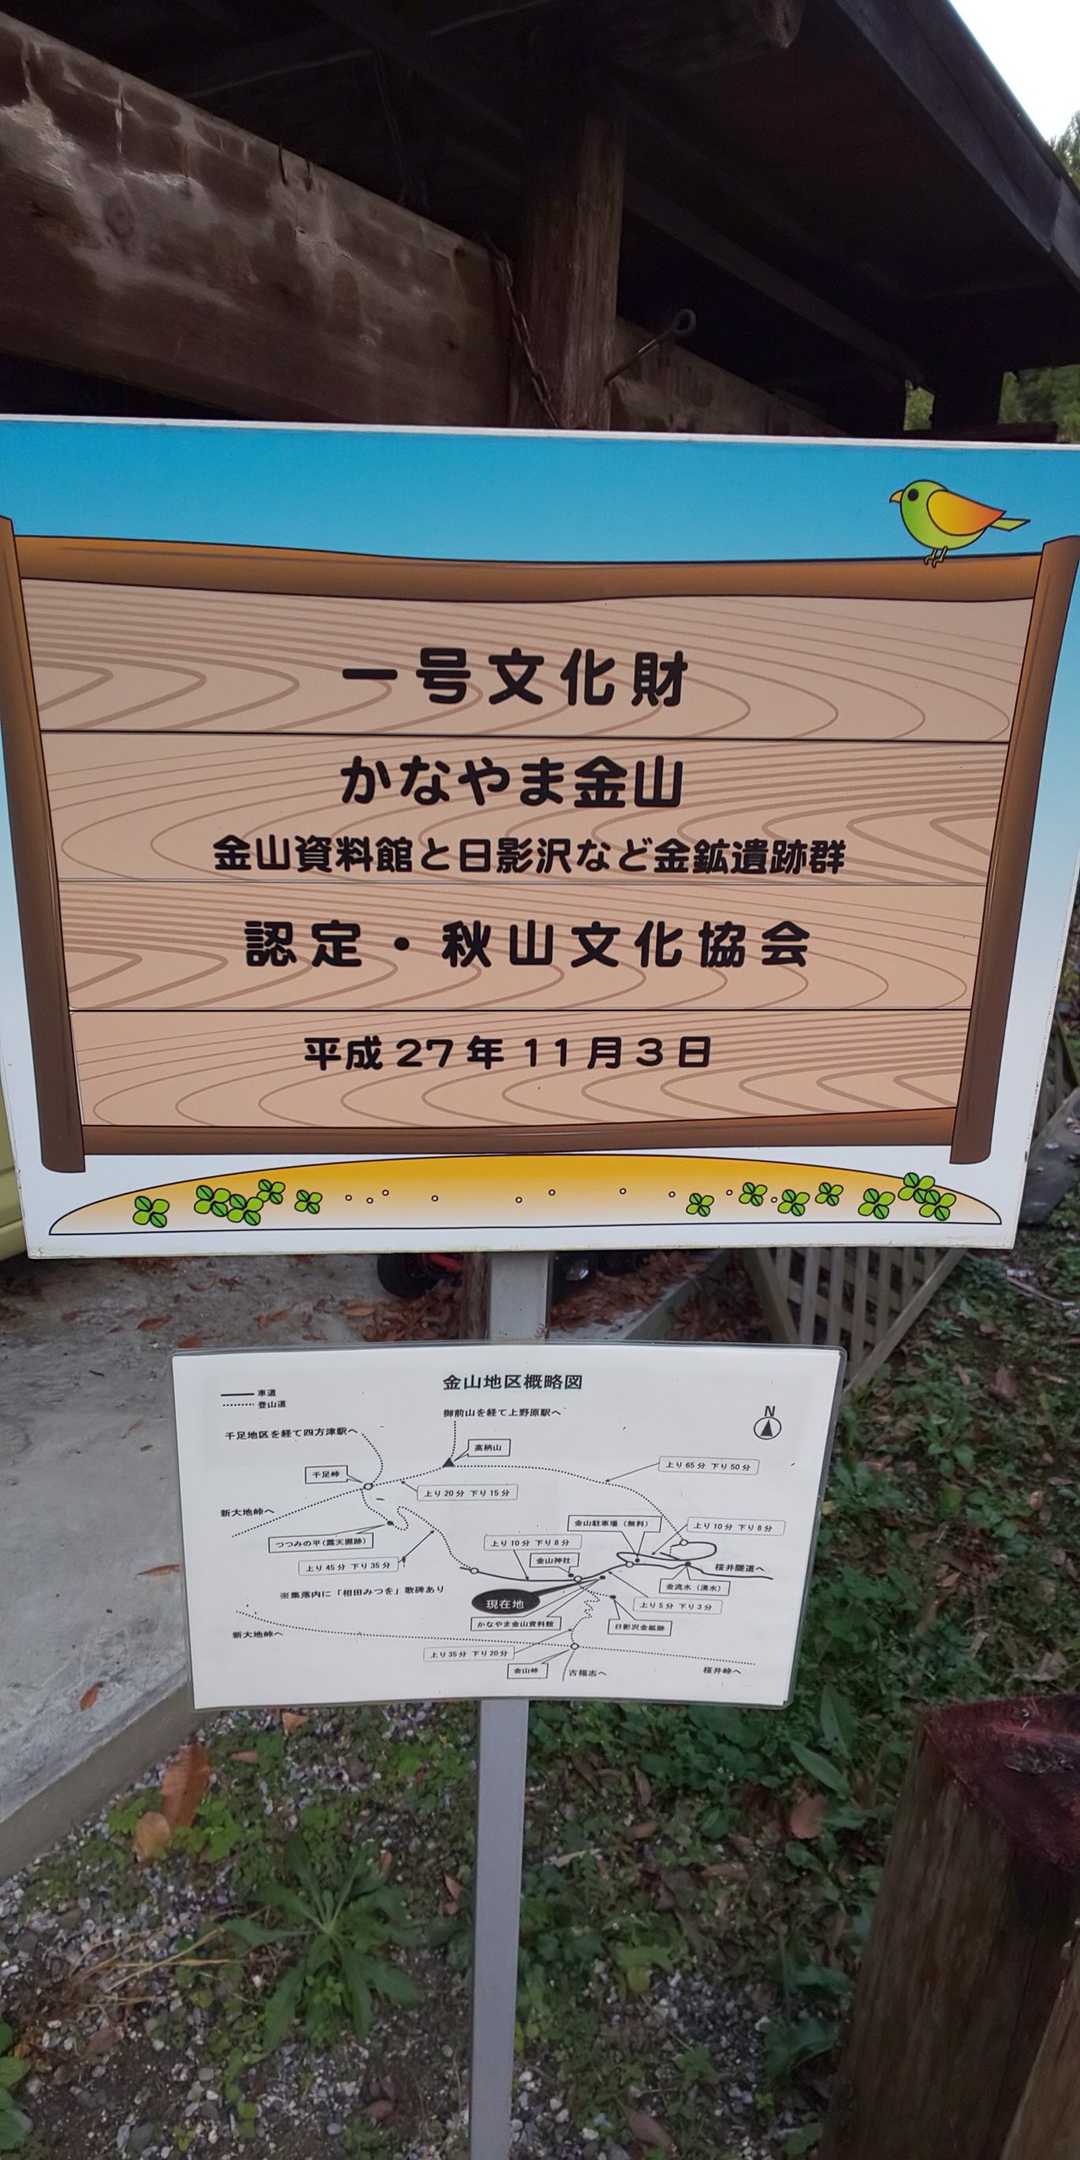 一号文化財
かなやま金山
金山資料館と日影沢など金鉱遺跡群
認定・秋山文化協会
平成27年11月3日
金山地区概略図
車道
登山道
御前山を経て上野原駅へ
N
千足地区を経て四方津駅へ
高柄山
上り65分 下り50分
千足峠
上り20分 下り15分
新大地峠へ
金山駐車場(無料)
上り10分 下り8分
つつみの平(露天掘跡)
上り10分 下り8分
上り45分 下り35分
金山神社
桜井隧道へ
金流水(湧水)
※集落内に「相田みつを」歌碑あり
現在地
上り5分 下り3分
かなやま金山資料館
日影沢金鉱跡
新大地峠へ
上り35分 下り20分
金山峠
古福志へ
桜井峠へ